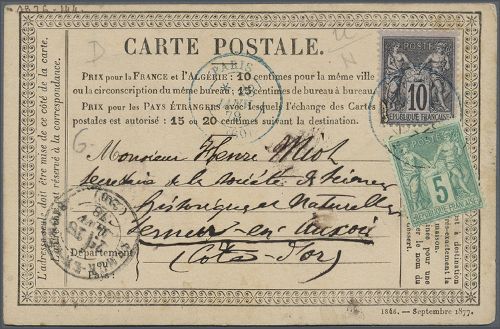 1876-144.
CARTE POSTALE.
PRIX pour la FRANCE et l'ALGÉRIE: 10 centimes pour la même ville
ou la circonscription du même bureau, et 15 centimes de bureau à bureau.
PRIX pour les PAYS ÉTRANGERS avec lesquels l'échange des Cartes
postales est autorisé: 15 ou 20 centimes suivant la destination.
Monsieur Henri Miot
Secrétaire de la Société de Sciences
Historiques et Naturelles
Semur-en-Auxois
(Côte-d'or)
Département
ou
Pays:
L'adresse seule doit être mise de ce côté de la carte.
L'autre côté est réservé à la correspondance.
PARIS
POSTE
10
RÉPUBLIQUE FRANÇAISE
5
D
N
G
1846. — Septembre 1877.